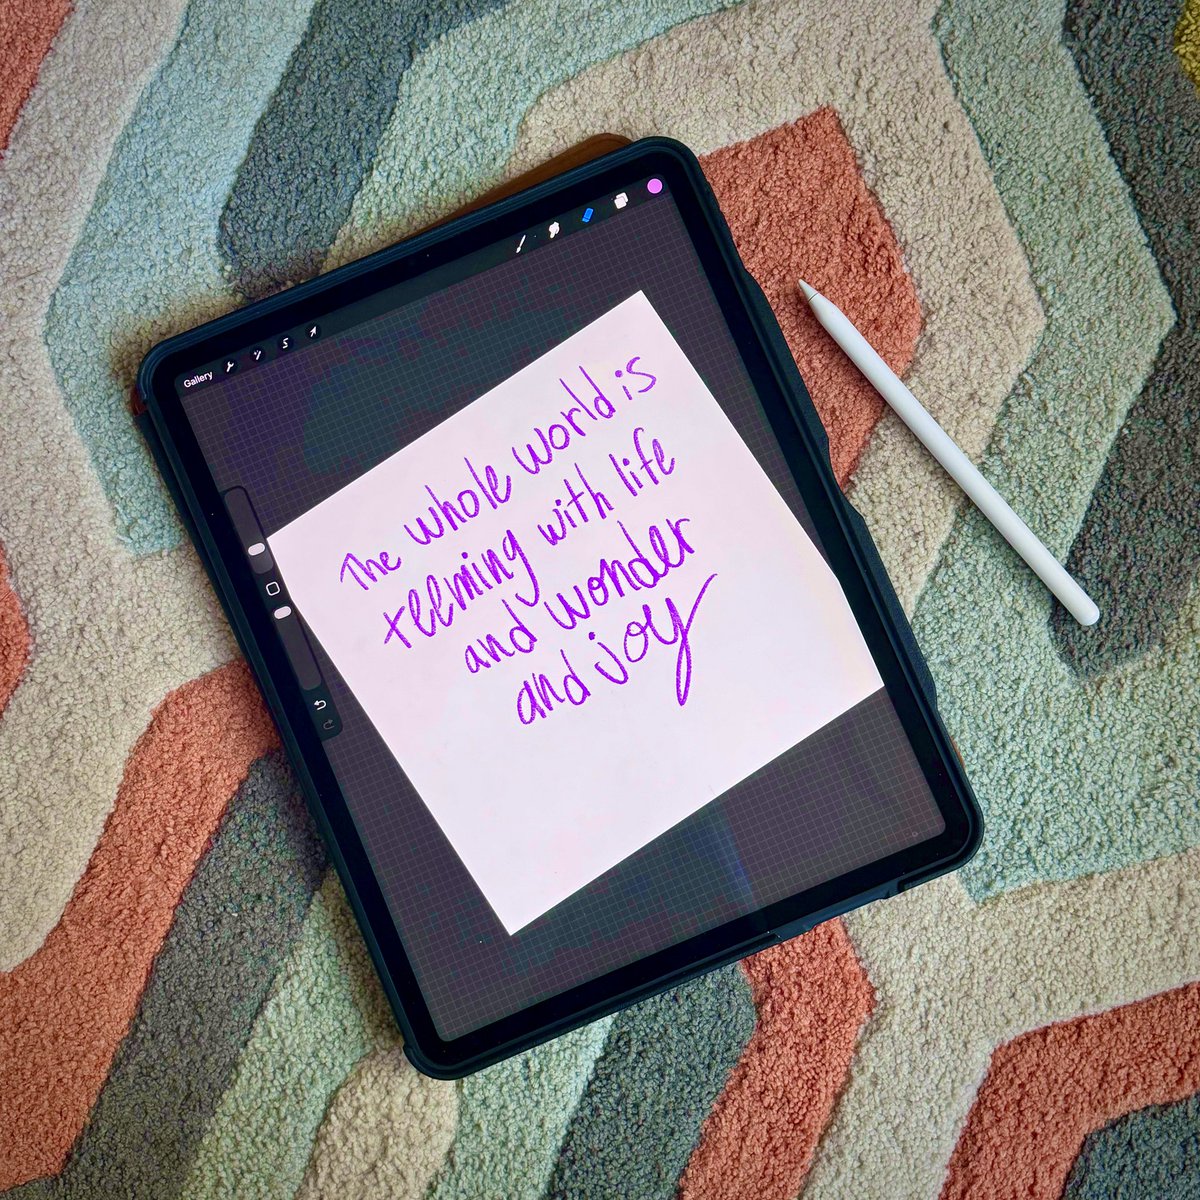 Gallery
The whole world is
teeming with life
and wonder
and joy